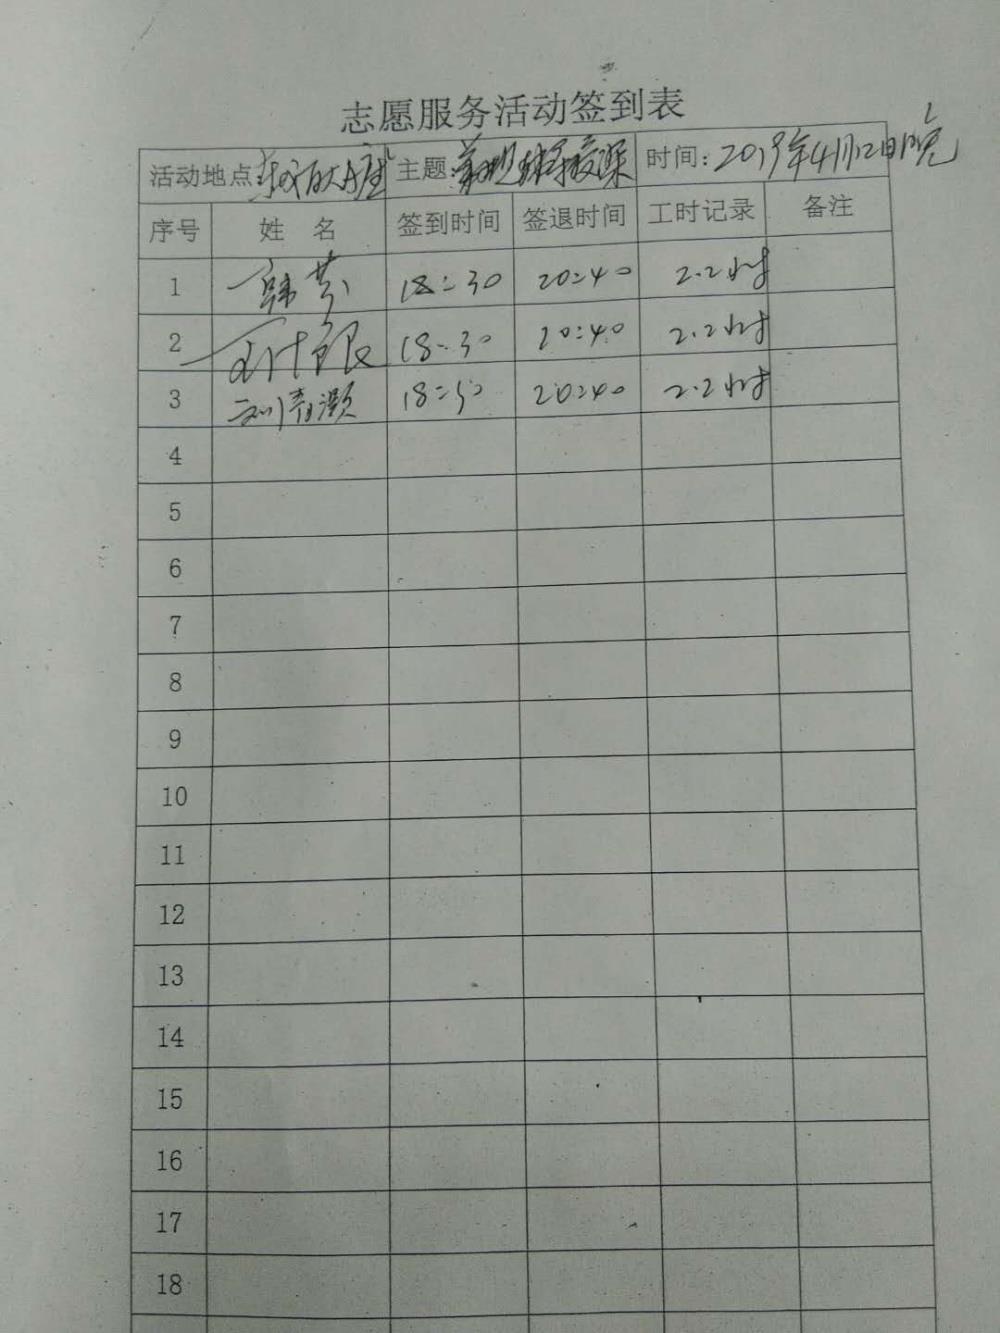 志愿服务活动签到表
活动地点 主题: 时间: 2019年4月12日晚
序号 姓 名 签到时间 签退时间 工时记录 备注
1 韩芬 18:30 20:40 2.2小时
2 18:30 20:40 2.2小时
3 18:30 20:40 2.2小时
4
5
6
7
8
9
10
11
12
13
14
15
16
17
18